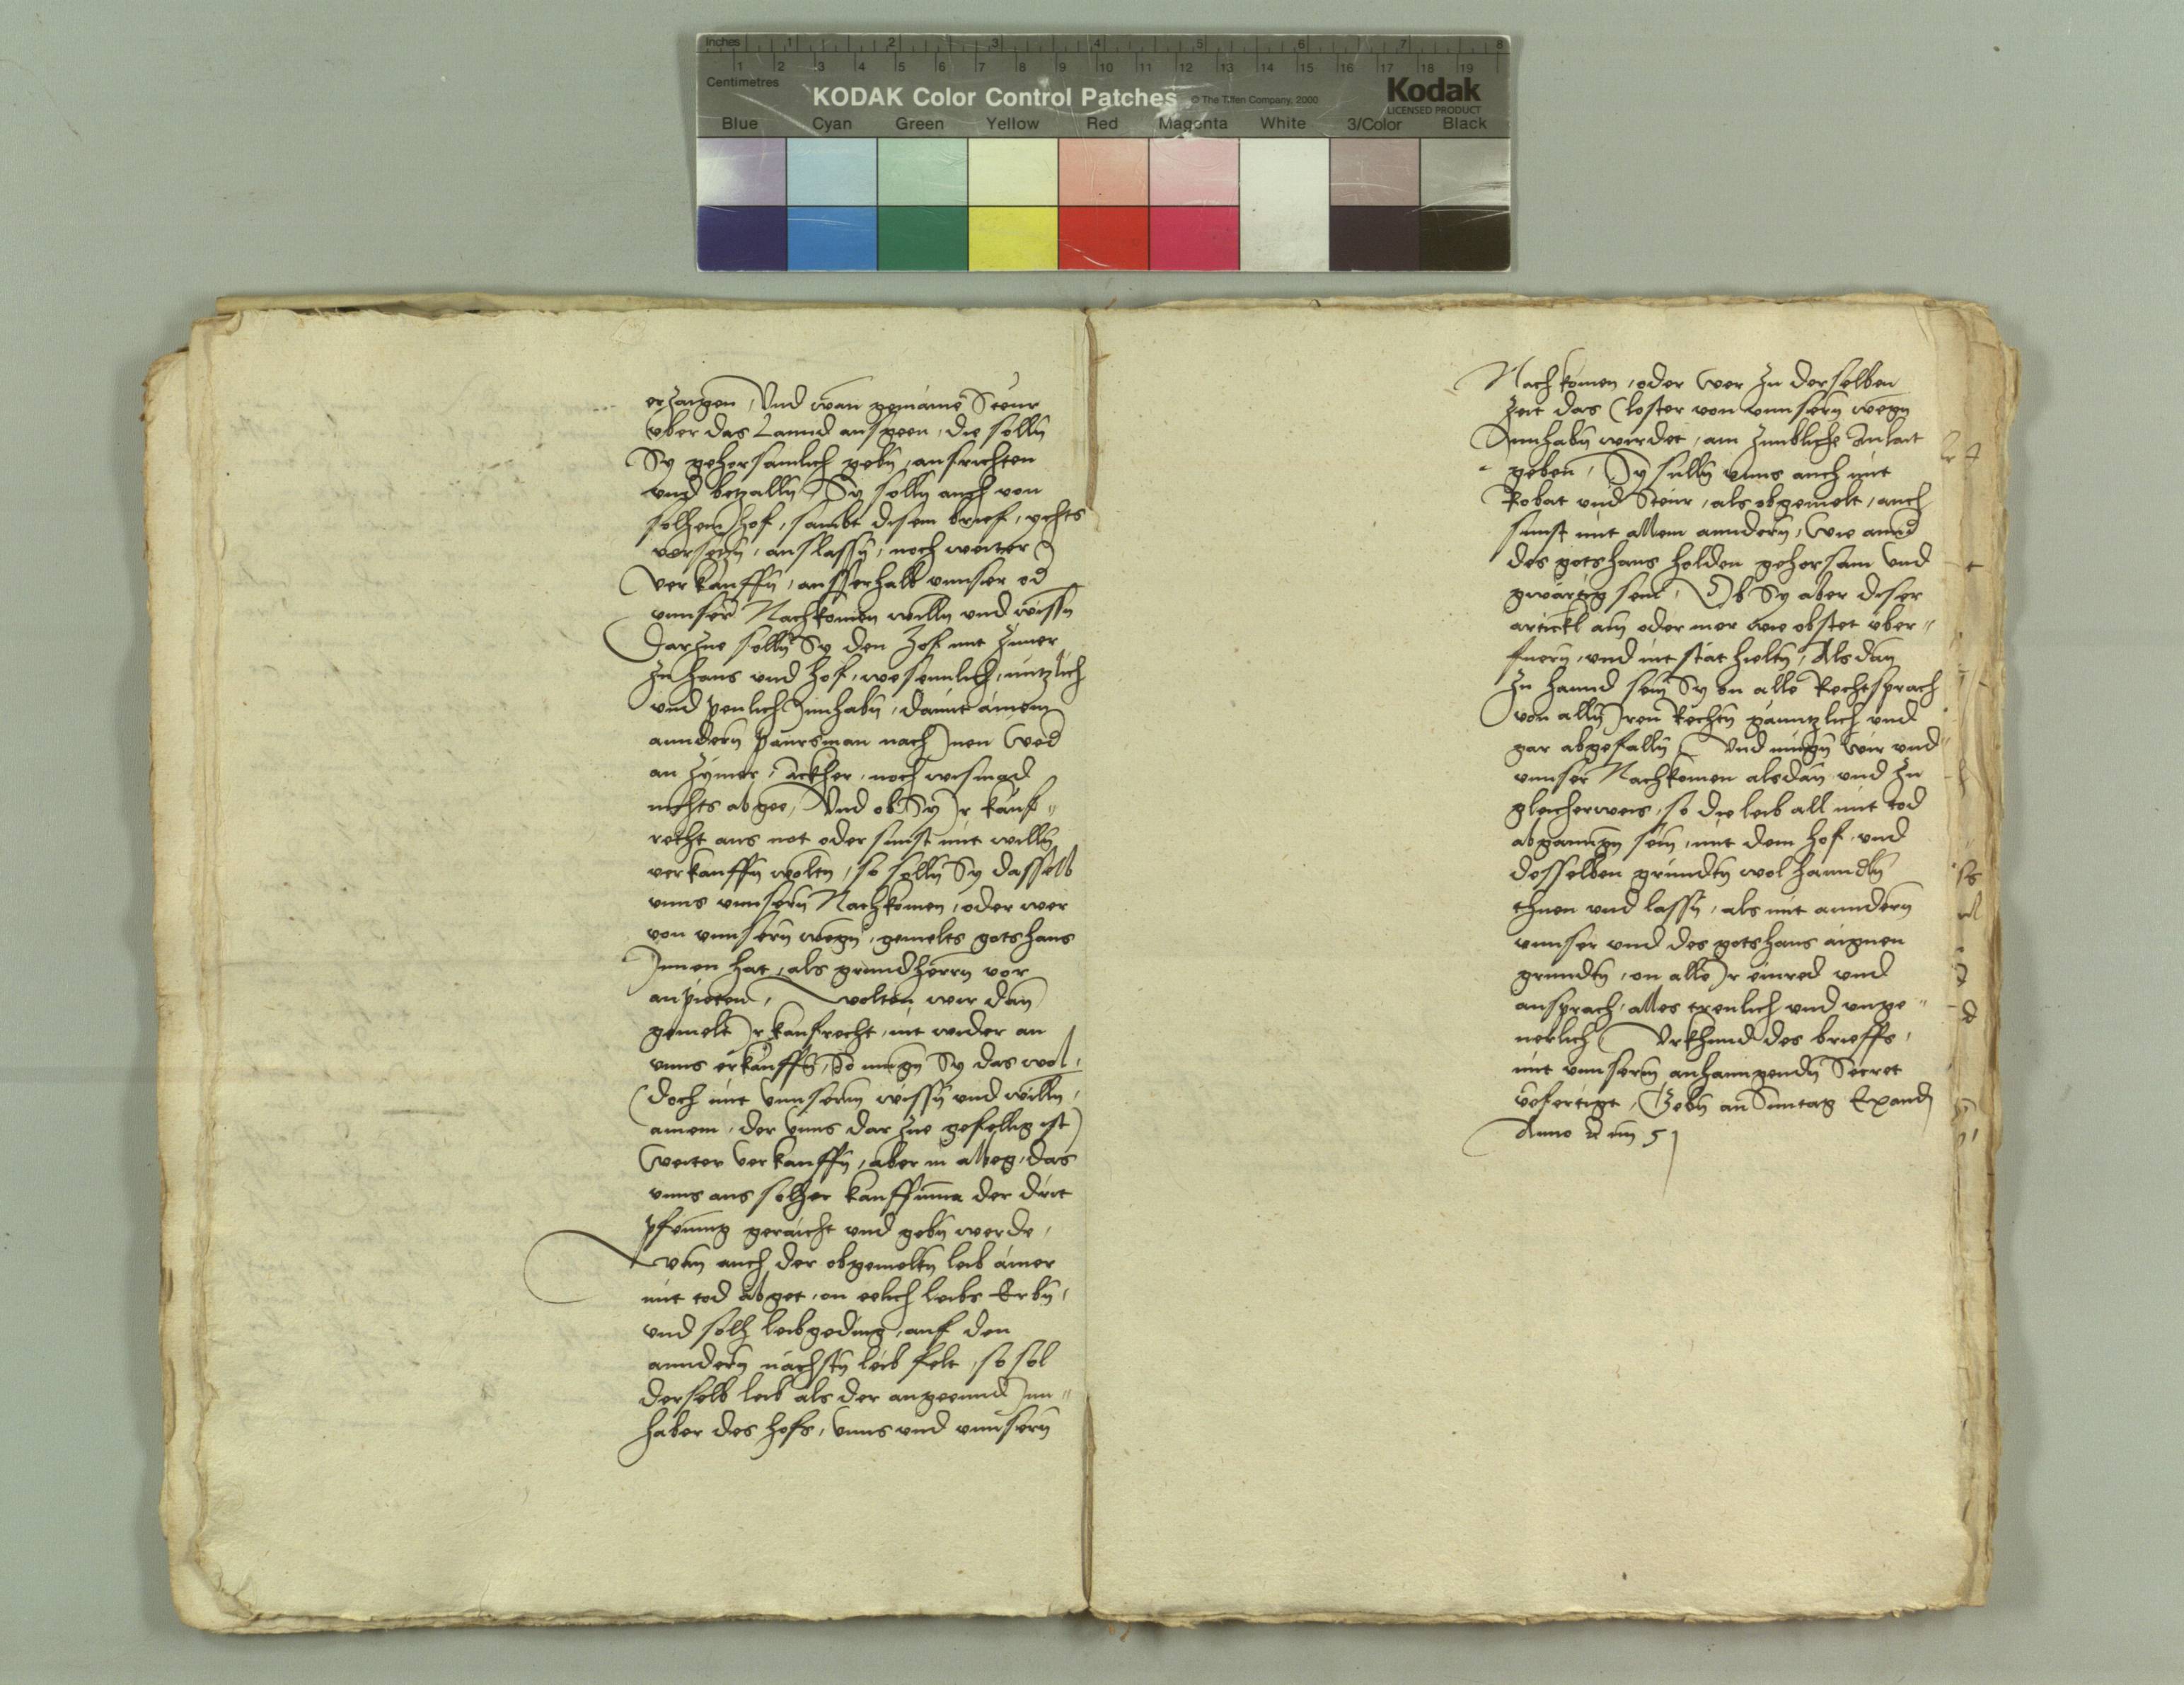 Inches 1 2 3 4 5 6 7 8
1 2 3 4 5 6 7 8 9 10 11 12 13 14 15 16 17 18 19
Centimetres
KODAK Color Control Patches © The Tiffen Company, 2000 Kodak
LICENSED PRODUCT
Blue Cyan Green Yellow Red Magenta White 3/Color Black
erzaigen, Und wan gemaine Steur
vber das Lannd ansgeen, die solln
Sy gehorsamlich gebn, ausrichten
vnd betzalln, Sy solln auch von
solhem hof, sambt disem brief, ichts
versetzn, auslassn, noch weiter
verkauffn, ausserhalb vnnser od
vnnser Nachkomen willn vnd wissn
Darzue solln Sy den Hof mit zimer
zu haus vnd hof, wesennlich, nutzlich
vnd peulich Innhabn, damit ainem
anndern paursman nach Inen wed
an zymer, äckher, noch wismad
nichts abgee, Und ob Sy Ir kauf-
recht aus not oder sunst mit willn
verkauffn wolten, so solln Sy dasselb
vnns vnnsern Nachkomen, oder wer
von vnnsern wegn, gemelts gotshaus
Innen hat, als grundherrn vor
anpieten, wolten wir dan
gemelt Ir kaufrecht, nit wider an
vnns erkauffn, So mugn Sy das wol,
(doch mit vnnserm wissn vnd willn,
ainem, der vnns darzue gefellig ist)
weiter verkauffn, aber in alweg, das
vnns aus solher kauffsuma der drit
pfening geraicht vnd gebn werde,
wan auch der obgemeltn leib ainer
mit tod abget, on eelich leibs Erbn,
vnd solh leibgeding, auf den
anndern nachstn leib felt, so sol
derselb leib als der angeennd Inn-
haber des hofs, vnns vnd vnnsern
Nachkomen, oder wer zu derselben
zeit das Closter von vnnsern wegn
Innhabn wirdet, ain zimbliche Anlait
geben, Sy solln vnns auch mit
Robat vnd Steur, als obgemelt, auch
sunst mit allem anndern, wie annd
des gotshaus holden gehorsam vnd
gwartig sein, Ob Sy aber diser
artickl ain oder mer wie obstet vber-
fuern, vnd nit stät hieltn, Alsdan
zu hannd sein Sy on alle Rechtsprach
von alln Iren Rechtn ganntzlich vnd
gar abgefalln, Und mugn wir vnd
vnnser Nachkomen alsdan vnd zu
gleicherweis, so die leib all mit tod
abganngn sein, mit dem hof, vnd
desselben grundtn wol hanndln
thuen vnd lassn, als mit anndern
vnnser vnd des gotshaus aignen
grundtn, on alle Ir einred vnd
ansprach, alles treulich vnd vnge-
uerlich, Urkhund des brieffs,
mit vnnserm anhanngendn Secret
veferttigt, Gebn an Suntag Exaudi
Anno